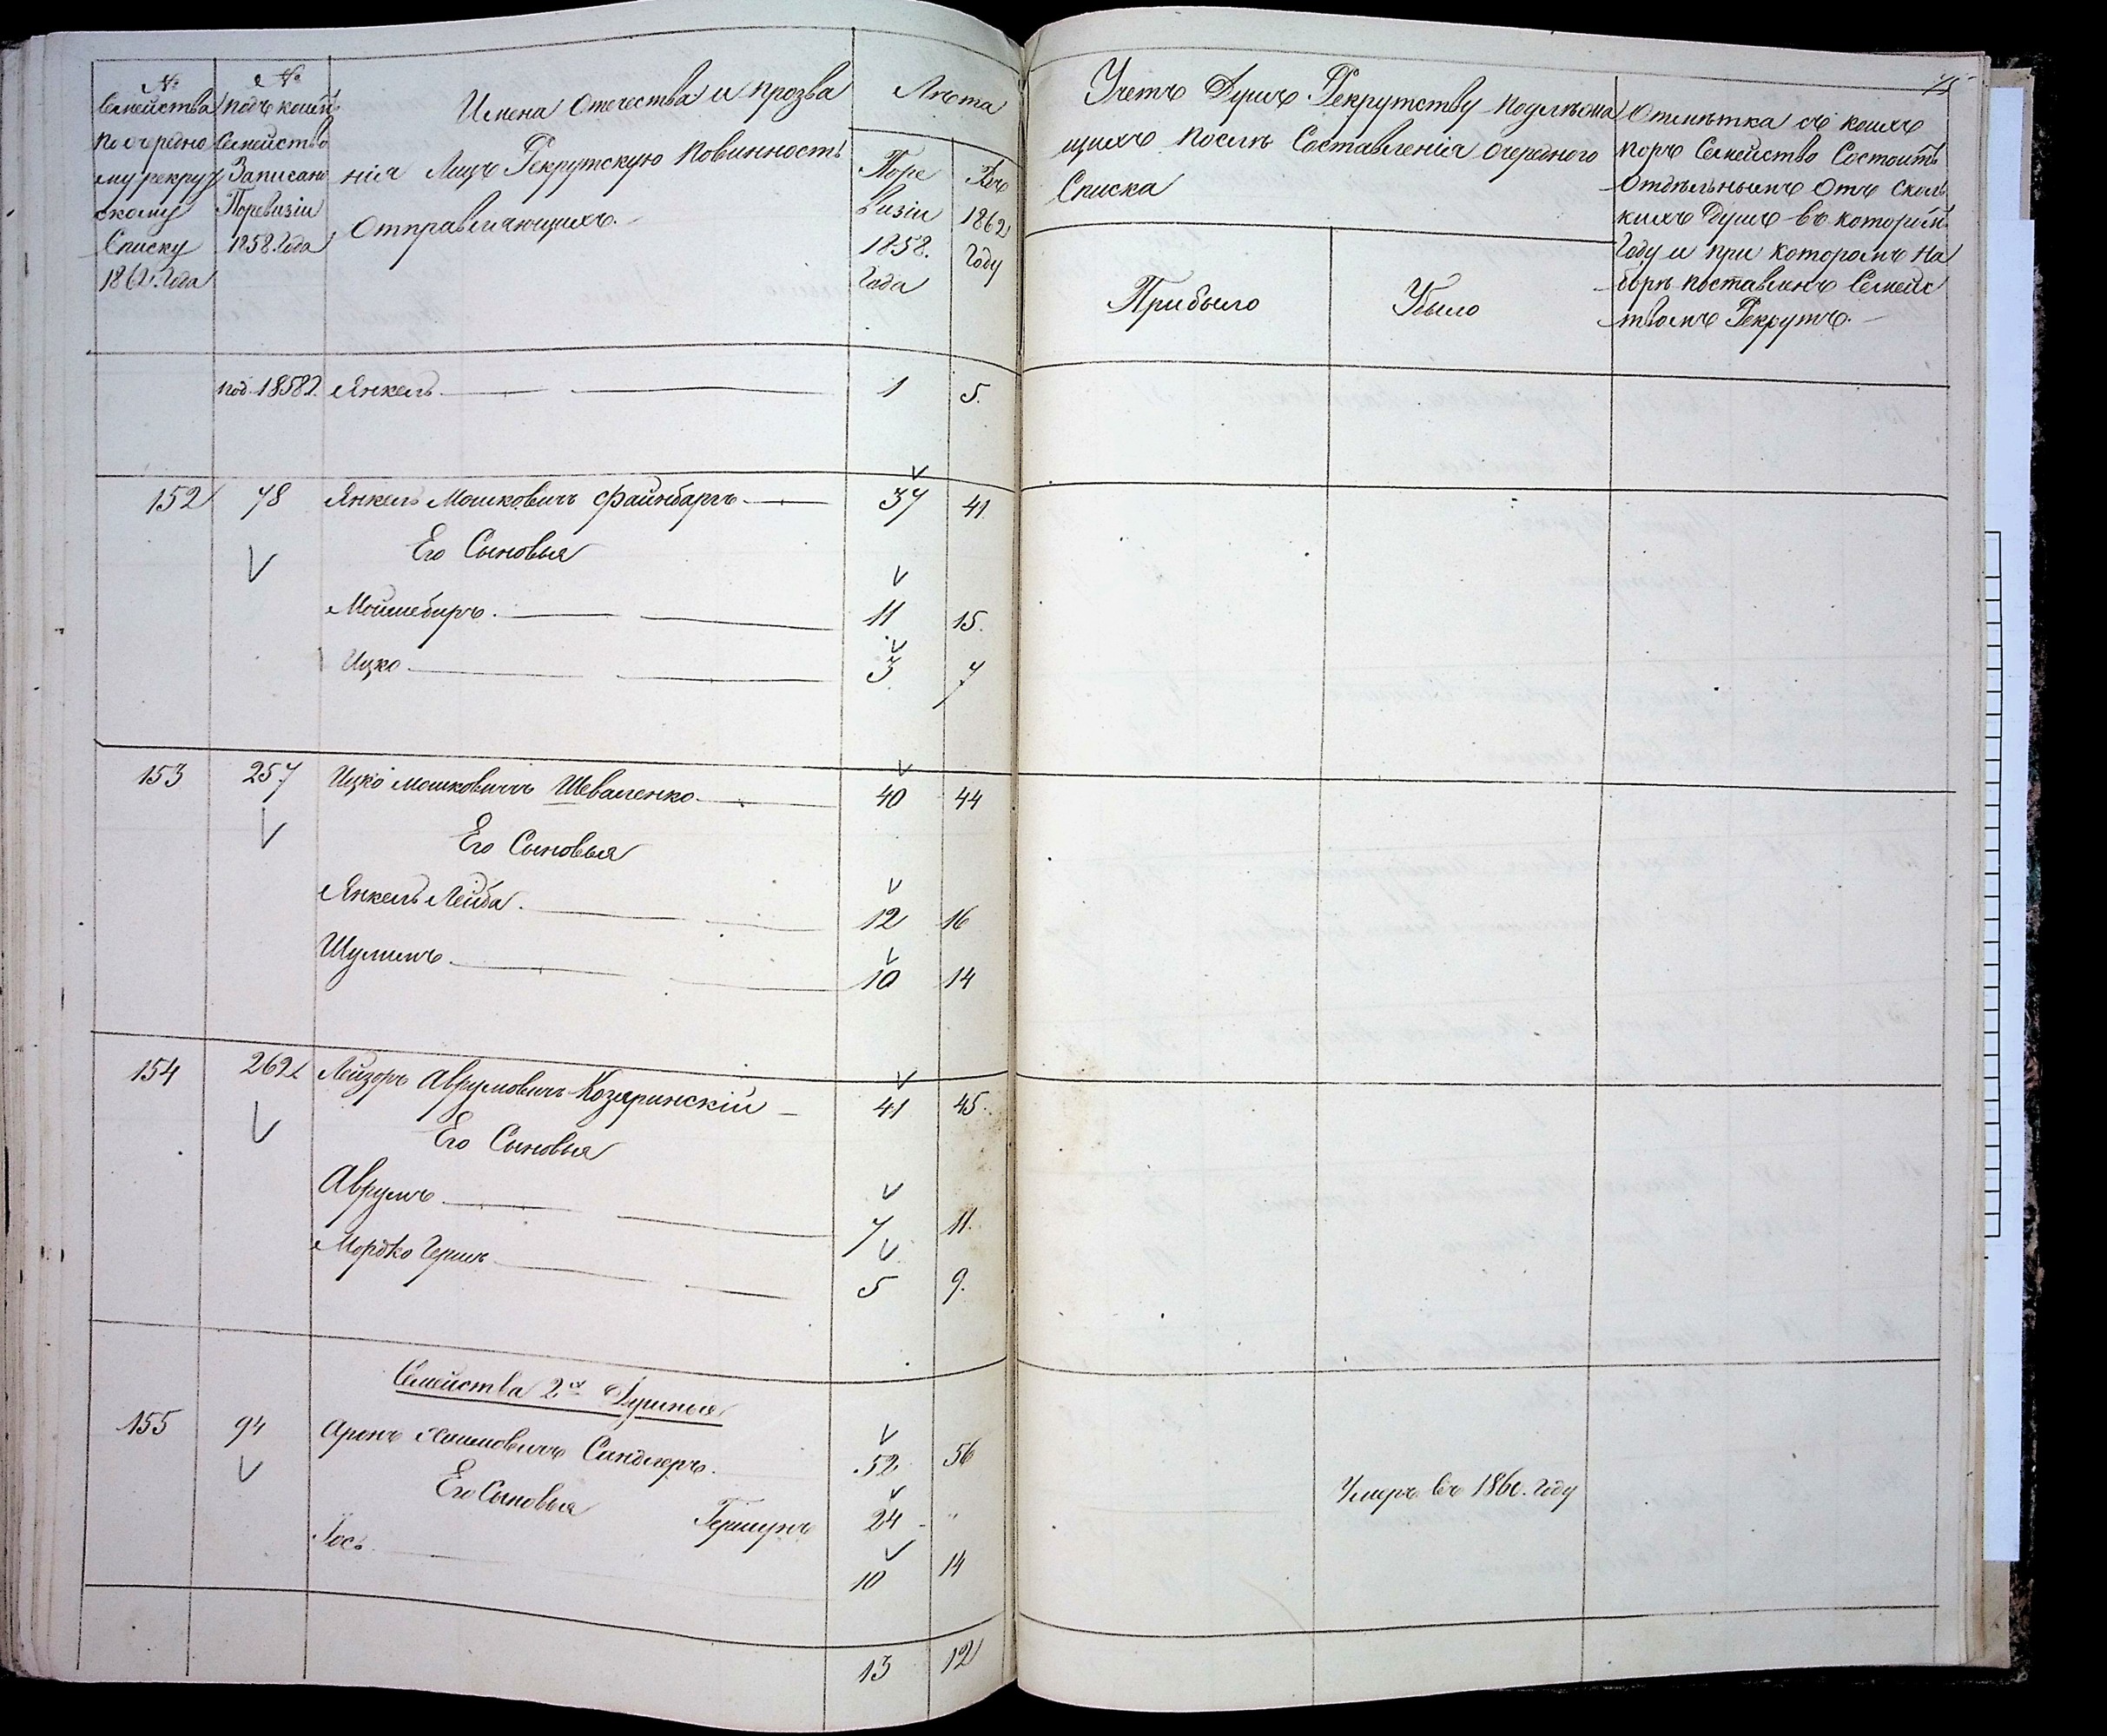 №
Семейства
по очередно
му рекрут
скому
Списку
1862. Года
№
подъ коимъ
Семейство
Записано
По ревизіи
1858. Года
Имена Отечества и прозва
нія Лицъ Рекрутскую повинность
Отправляющихъ.
Лѣта
По ре
визіи
1858.
Года
Въ
1862
Году
75
Учетъ Душъ Рекрутству подлѣжа
щихъ послѣ Составленія очереднаго
Списка
Прибыло
Убыло
Отмѣтка съ коихъ
поръ Семейство Состоитъ
отдѣльнымъ отъ Сколь
кихъ душъ въ которомъ
Году и при которомъ На
борѣ поставленъ Семейс
твомъ Рекрутъ.
под 1858 г. Янкель 1 5.
152 78 Янкель Мошковичъ Файнбаргъ 37 41
Его Сыновья
Мойшебиръ 11 15.
Ицко 3 7
153 257 Ицко Мошковичъ Шеваленко 40 44
Его Сыновья
Янкель Лейба 12 16
Шулимъ 10 14
154 262 Лейзоръ Аврумовичъ Козаринскій 41 45.
Его Сыновья
Аврумъ 7 11.
Мордко Гершъ 5 9.
Семейства 2х Душныя
155 94 Аронъ Хаимовичъ Сандлеръ. 52 56
Его Сыновья Гершунъ 24 " Умеръ въ 1860. Году
Іось 10 14
13 12